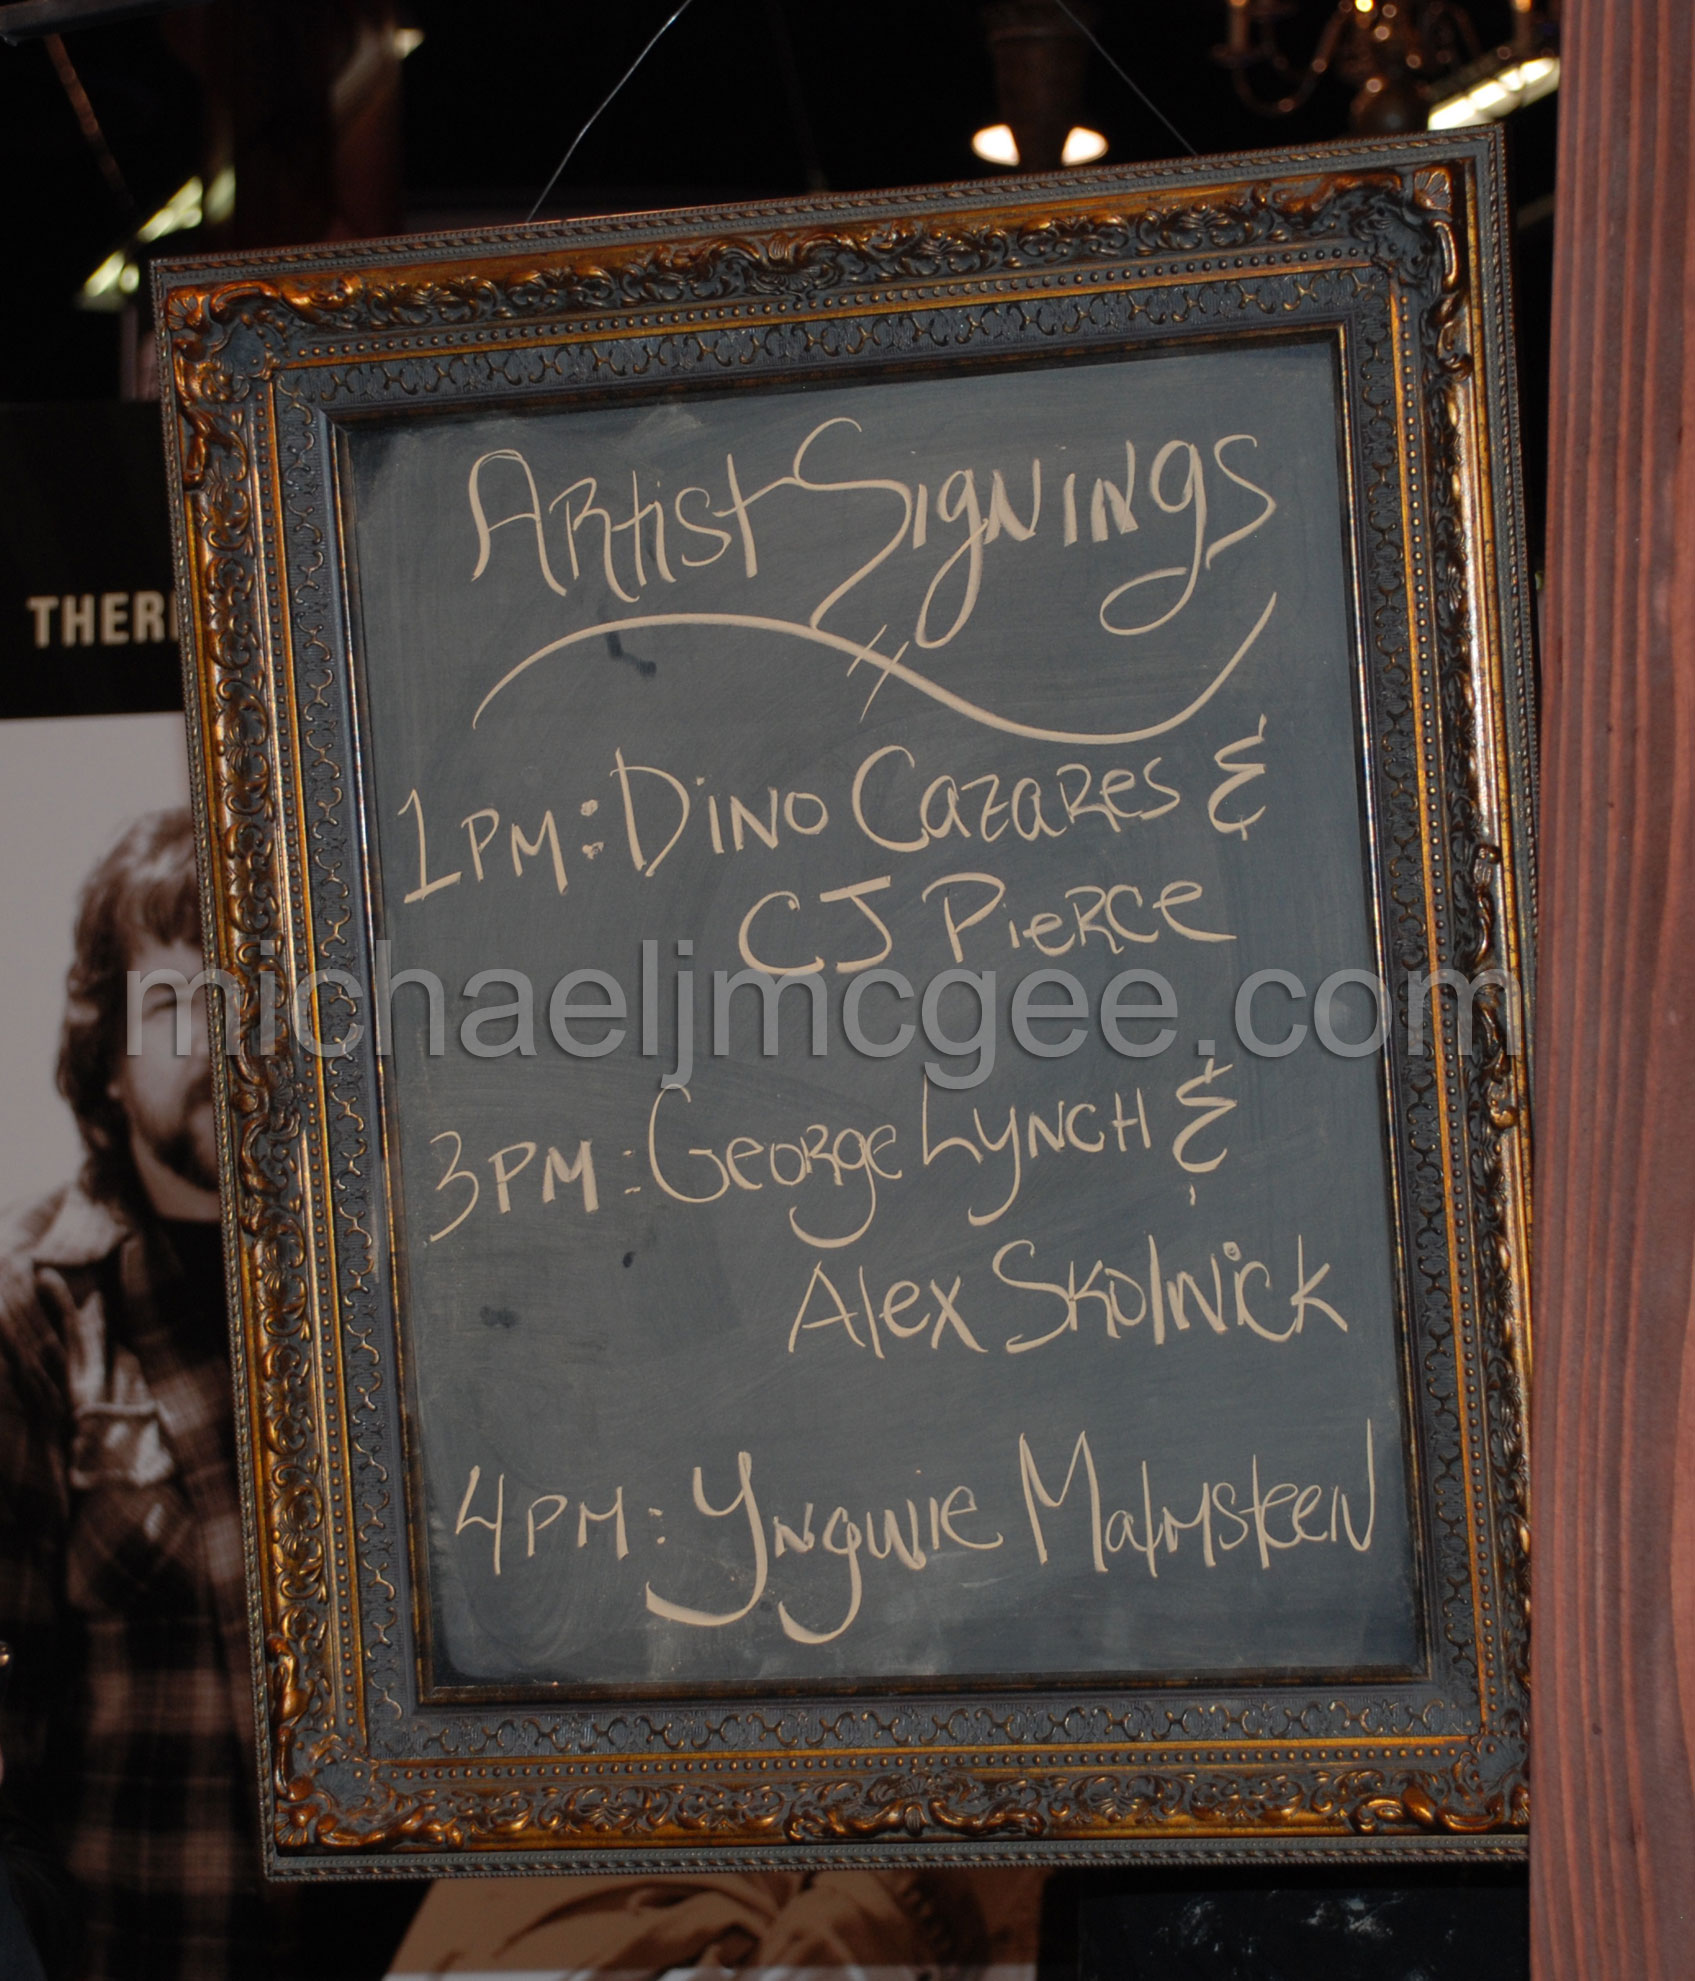 Artist Signings
THER
1PM: Dino Cazares &
CJ Pierce
michaeljmcgee.com
3PM: George Lynch &
Alex Skolnick
4PM: Yngwie Malmsteen